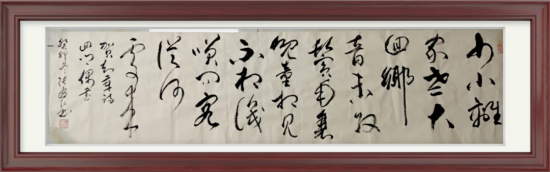 少小離
家老大
回鄉
音未改
鬢毛衰
兒童相見
不相識
笑問客
從何
處來
賀知章詩
回鄉偶書
癸卯